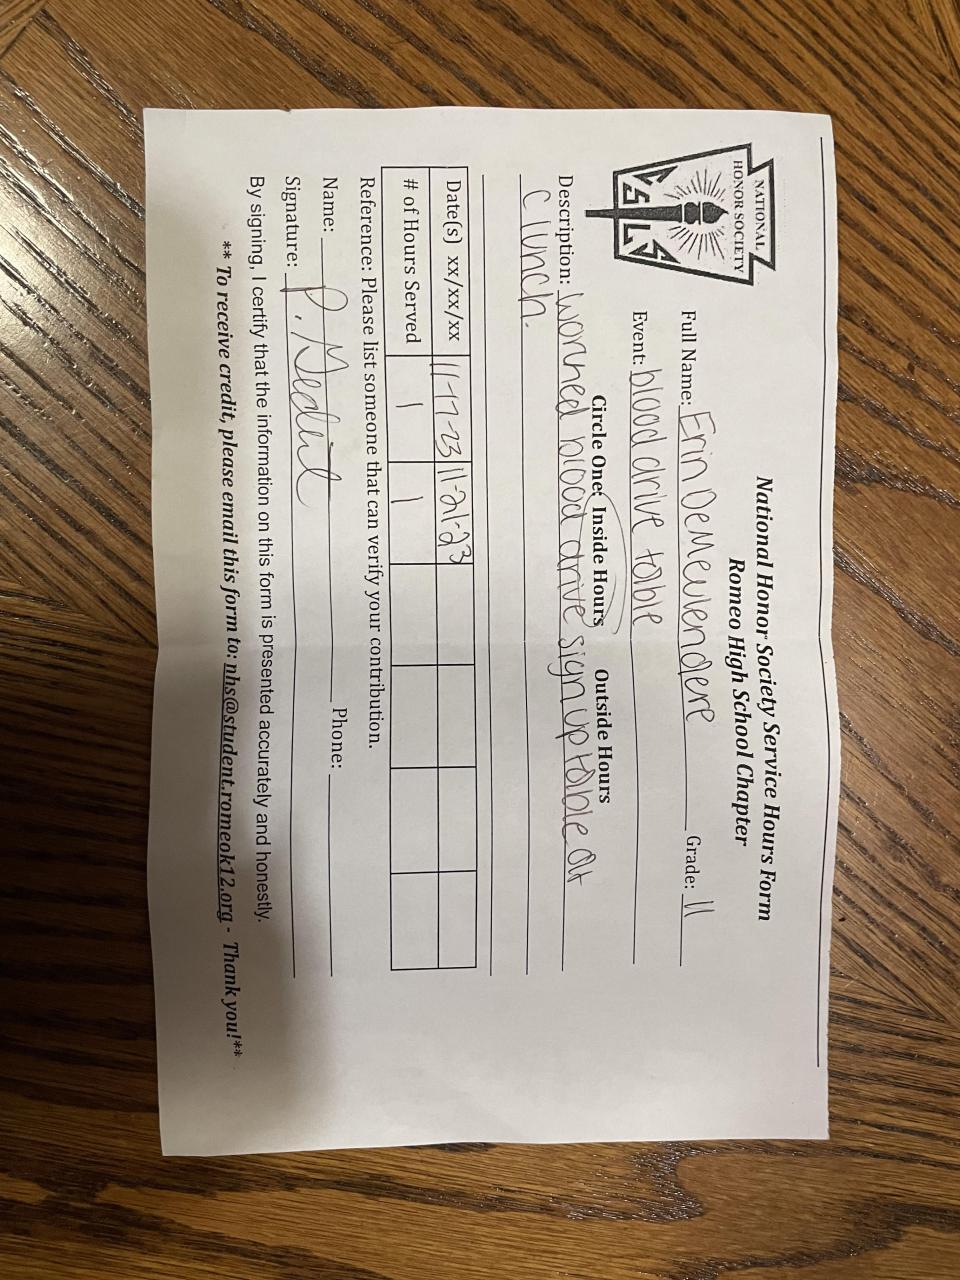 National Honor Society Service Hours Form
Romeo High School Chapter
NATIONAL
HONOR SOCIETY
C S L S
Full Name: Erin Demeulendere Grade: 11
Event: blood drive table
Circle One: Inside Hours Outside Hours
Description: worked blood drive sign up table at
C lunch.
Date(s) xx/xx/xx 11-17-23 11-21-23
# of Hours Served 1 1
Reference: Please list someone that can verify your contribution.
Name: Phone:
Signature: P.
By signing, I certify that the information on this form is presented accurately and honestly.
** To receive credit, please email this form to: nhs@student.romeok12.org - Thank you!**